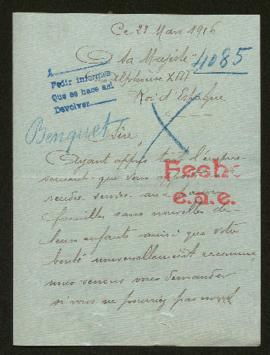 Ce 23 Mars 1916
A Sa Majesté
4085
Alphonse XIII
Roi d'Espagne
Pedir informes
Que se hace así
Devolver
Benquet
Sire
Ayant appris tout l'empres-
sement que vous
rendre service aux
Fecho
e.a.e.
familles sans nouvelles de
leurs enfants ainsi que votre
bonté universellement reconnue
nous venons vous demander
si vous ne pourriez pas